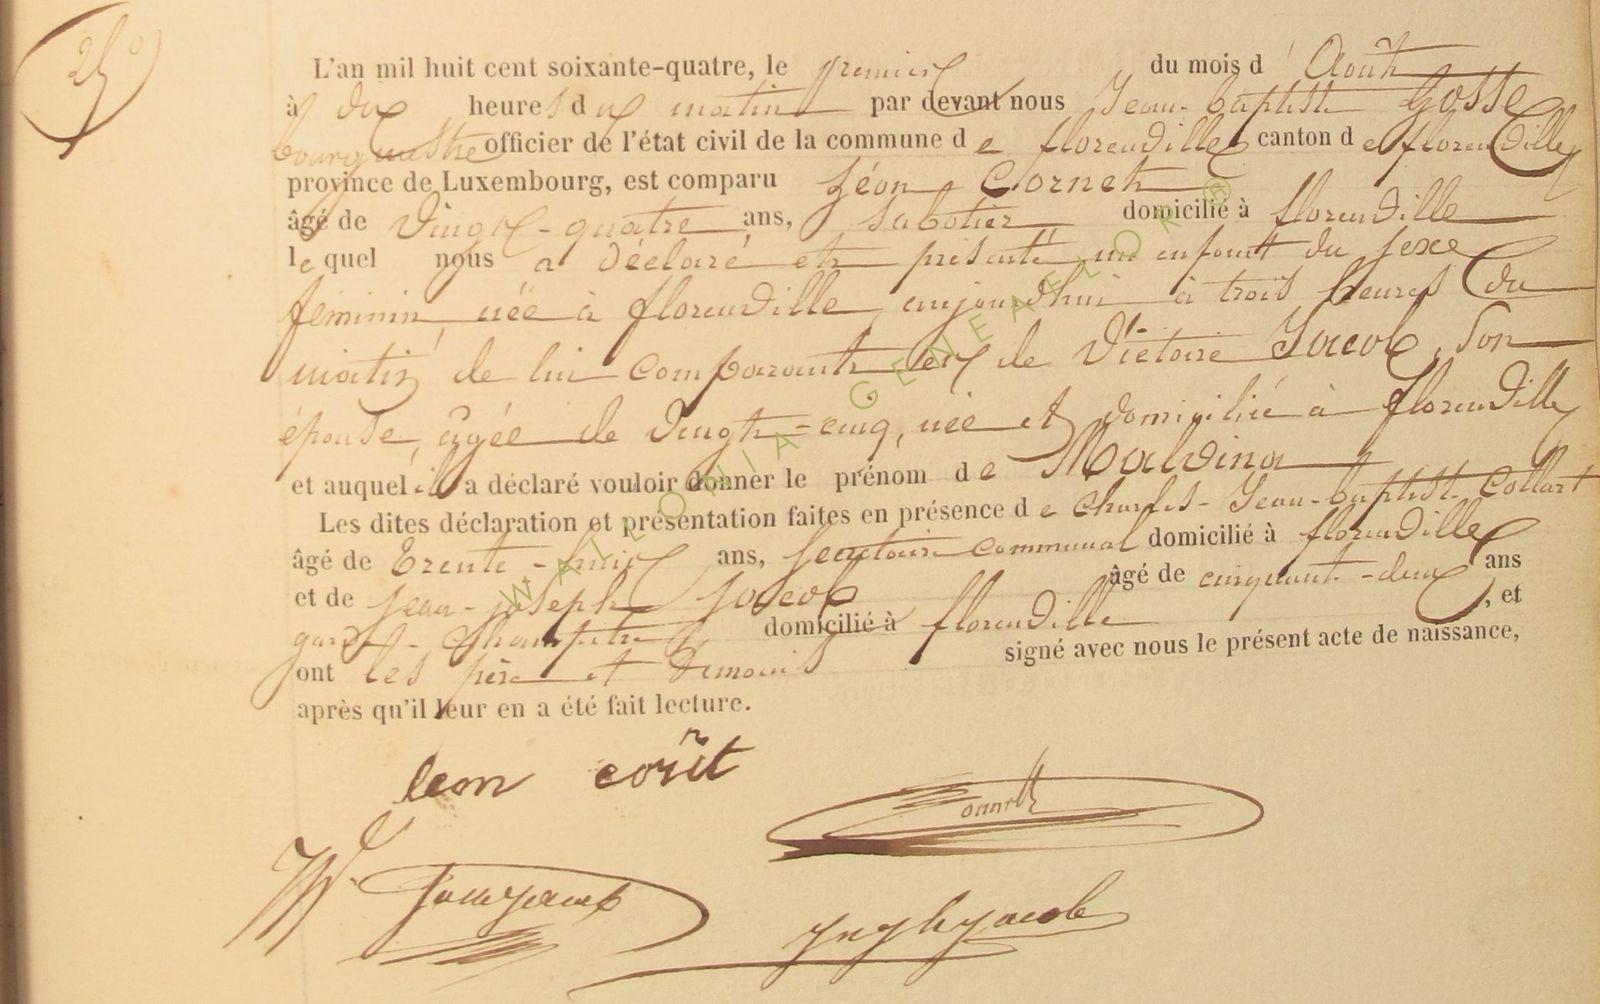 25º
L'an mil huit cent soixante-quatre, le premier du mois d' Août
à dix heures du matin par devant nous Jean-baptiste Gosse
bourgmestre officier de l'état civil de la commune de florenville canton de florenville
province de Luxembourg, est comparu Léon Cornet
âgé de vingt-quatre ans, sabotier domicilié à florenville
lequel nous a déclaré et présenté un enfant du sexe
féminin, née à florenville, aujourdhui à trois heures du
matin, de lui comparant et de Victoire Jacob, son
épouse, agée de vingt-cinq, née et domiciliée à florenville
et auquel il a déclaré vouloir donner le prénom de Malvina
Les dites déclaration et présentation faites en présence de Charles-Jean-baptiste Collart
âgé de trente-huit ans, secrétaire communal domicilié à florenville
et de Jean-joseph Jacob âgé de cinquante-deux ans
garde-champêtre domicilié à florenville , et
ont les père et témoins signé avec nous le présent acte de naissance,
après qu'il leur en a été fait lecture.
leon
jacob
WALLONIA GENEALOR ®